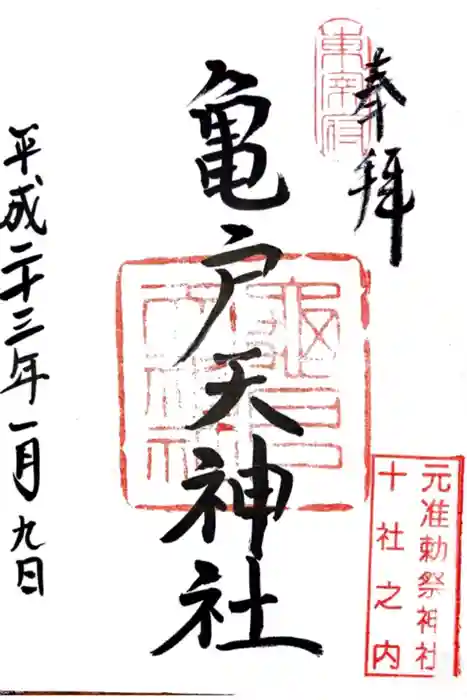 東宰府
奉拝
亀戸天神社
元准勅祭神社
十社之内
平成二十三年一月九日